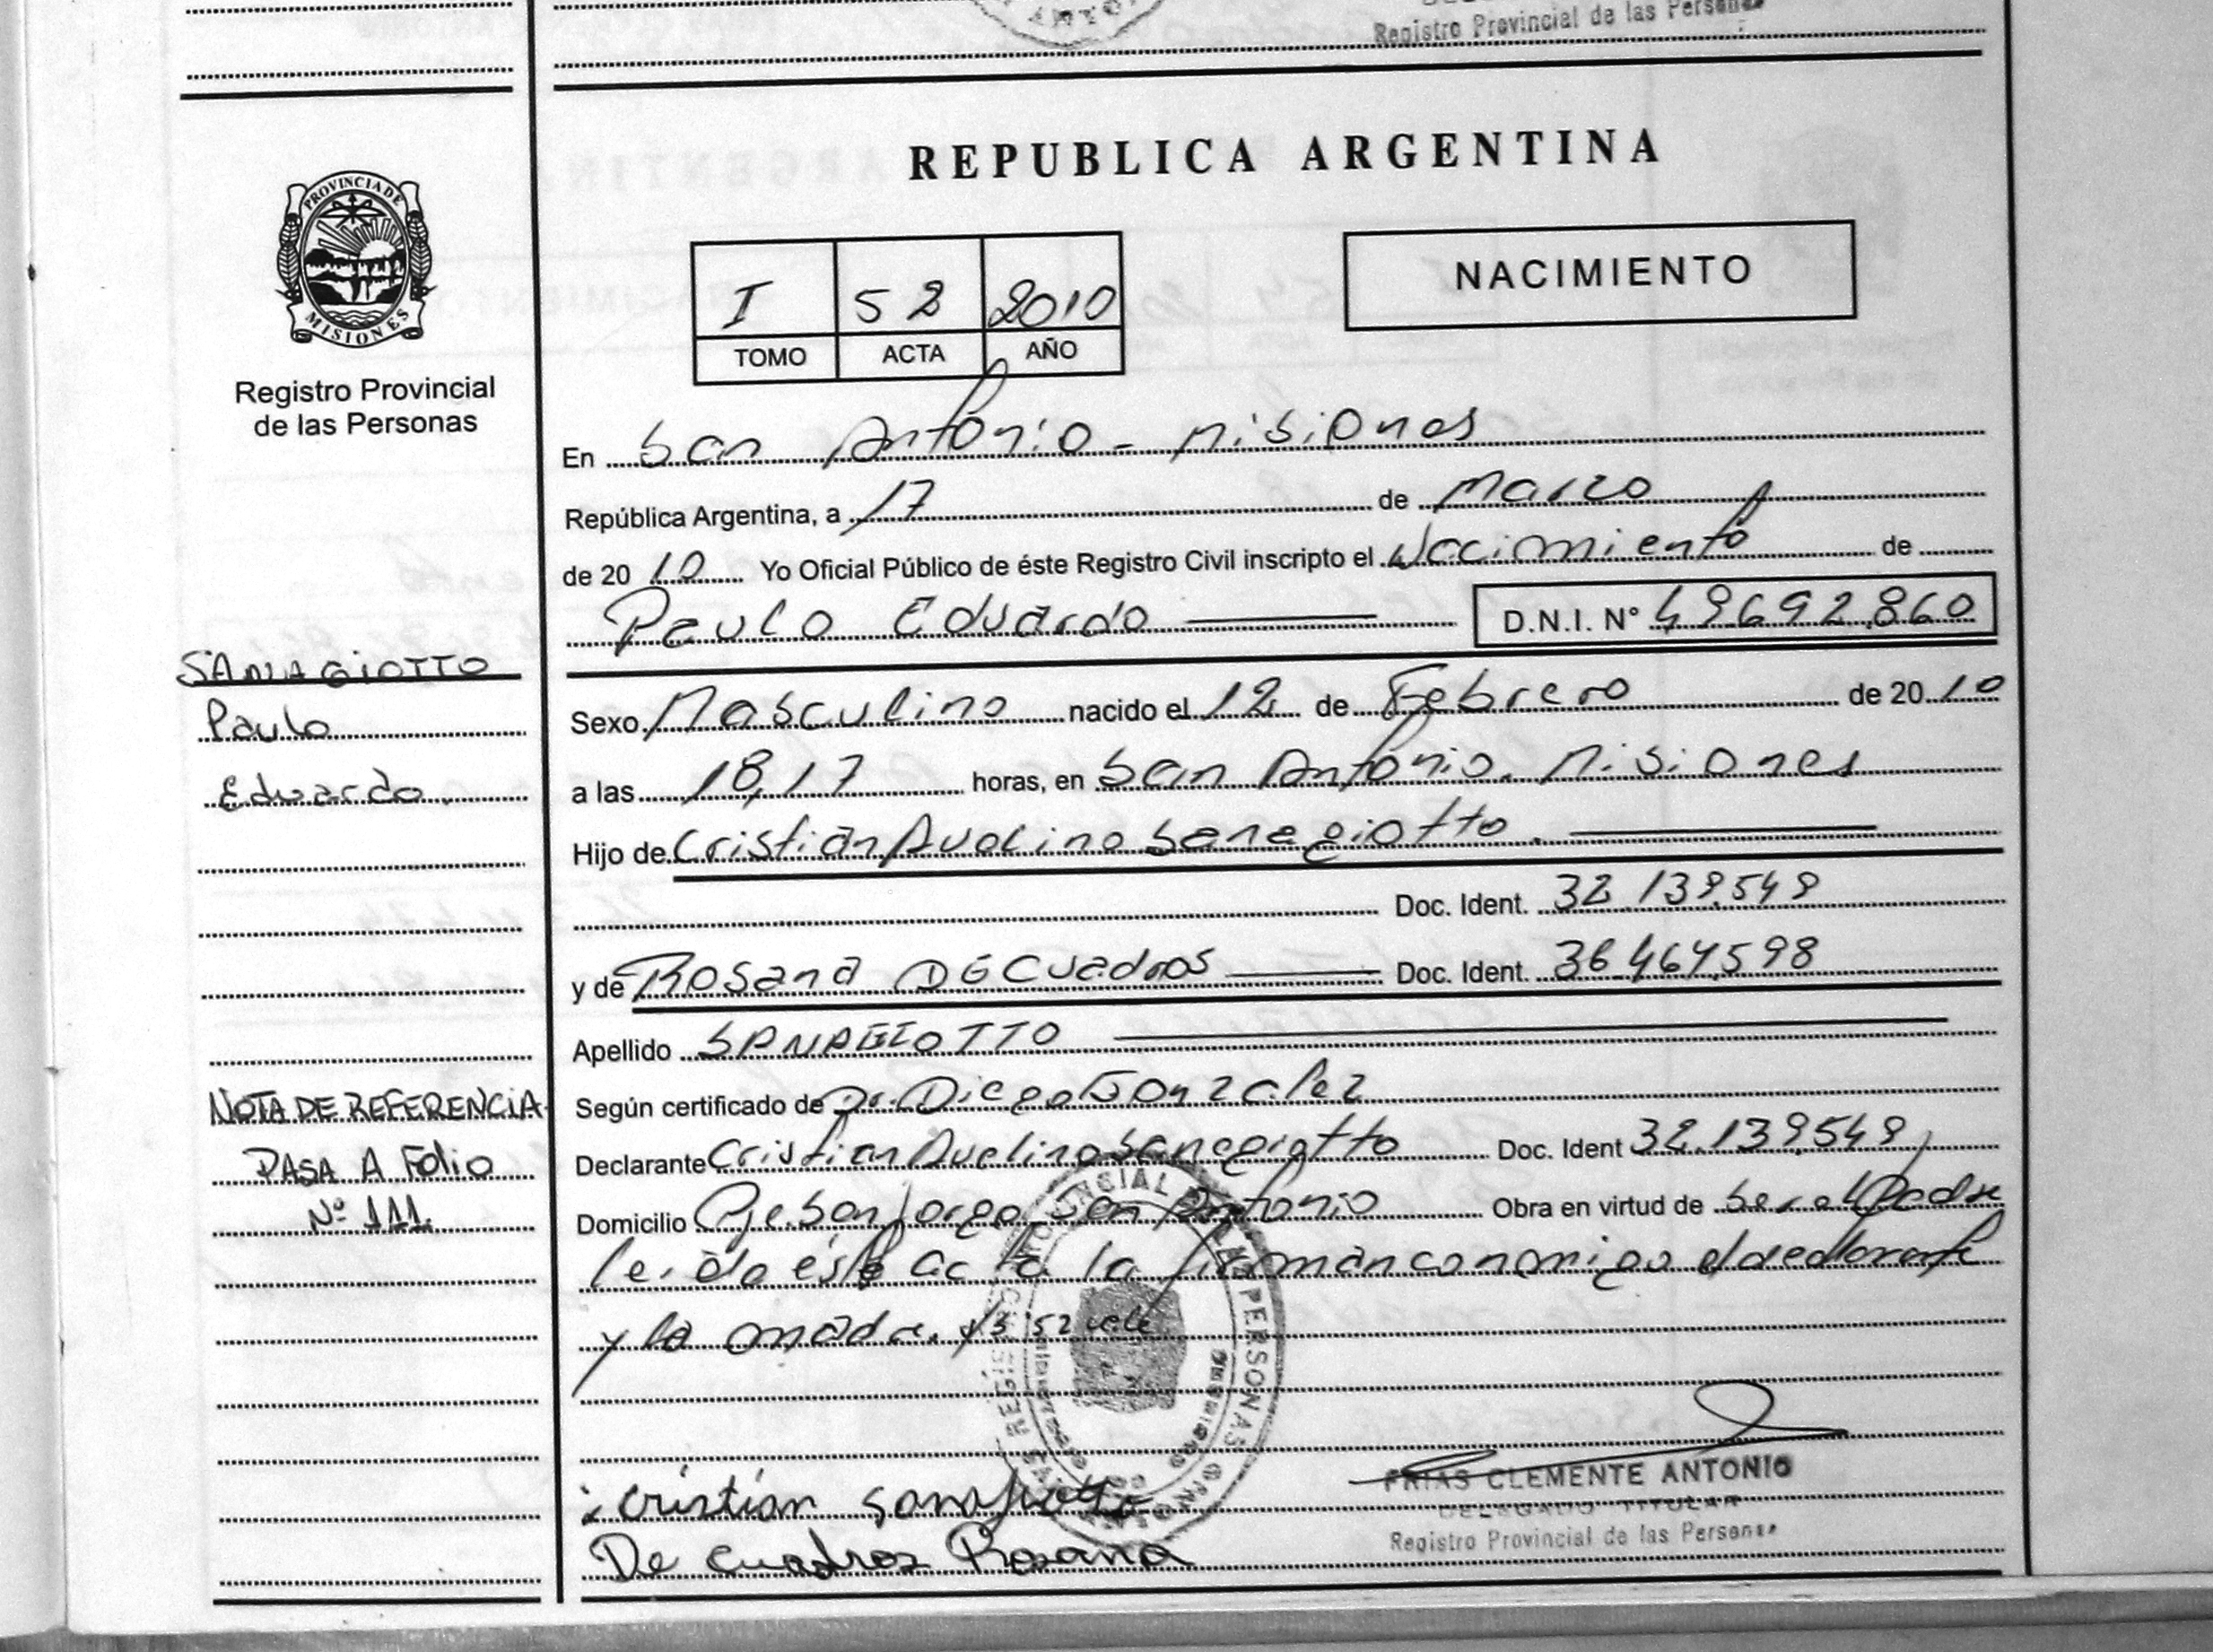 Registro Provincial de las Personas
REPUBLICA ARGENTINA
PROVINCIA DE
MISIONES
Registro Provincial
de las Personas
I 52 2010
TOMO ACTA AÑO
NACIMIENTO
En San Antonio - Misiones
República Argentina, a 17 de Marzo
de 2010 Yo Oficial Público de éste Registro Civil inscripto el Nacimiento de
Paulo Eduardo D.N.I. Nº 49692.860
SANAGIOTTO
Paulo
Eduardo.
Sexo Masculino nacido el 12 de Febrero de 2010
a las 18,17 horas, en San Antonio. Misiones
Hijo de Cristian Avelino Sanagiotto.
Doc. Ident. 32 139.549
y de Rosana DE Cuadros Doc. Ident. 36.464.598
Apellido SANAGIOTTO
NOTA DE REFERENCIA
PASA A Folio
Nº 111
Según certificado de Dr. Diego Gonzalez
Declarante Cristian Avelino Sanagiotto Doc. Ident 32.139.549
Domicilio Pje. San Jorge San Antonio Obra en virtud de Ser el Padre
leida ésta acta la firman conmigo el declarante
y la madre. 52 vale
REGISTRO PROVINCIAL DE LAS PERSONAS
Cristian Sanagiotto
De cuadros Rosana
FRIAS CLEMENTE ANTONIO
DELEGADO TITULAR
Registro Provincial de las Personas